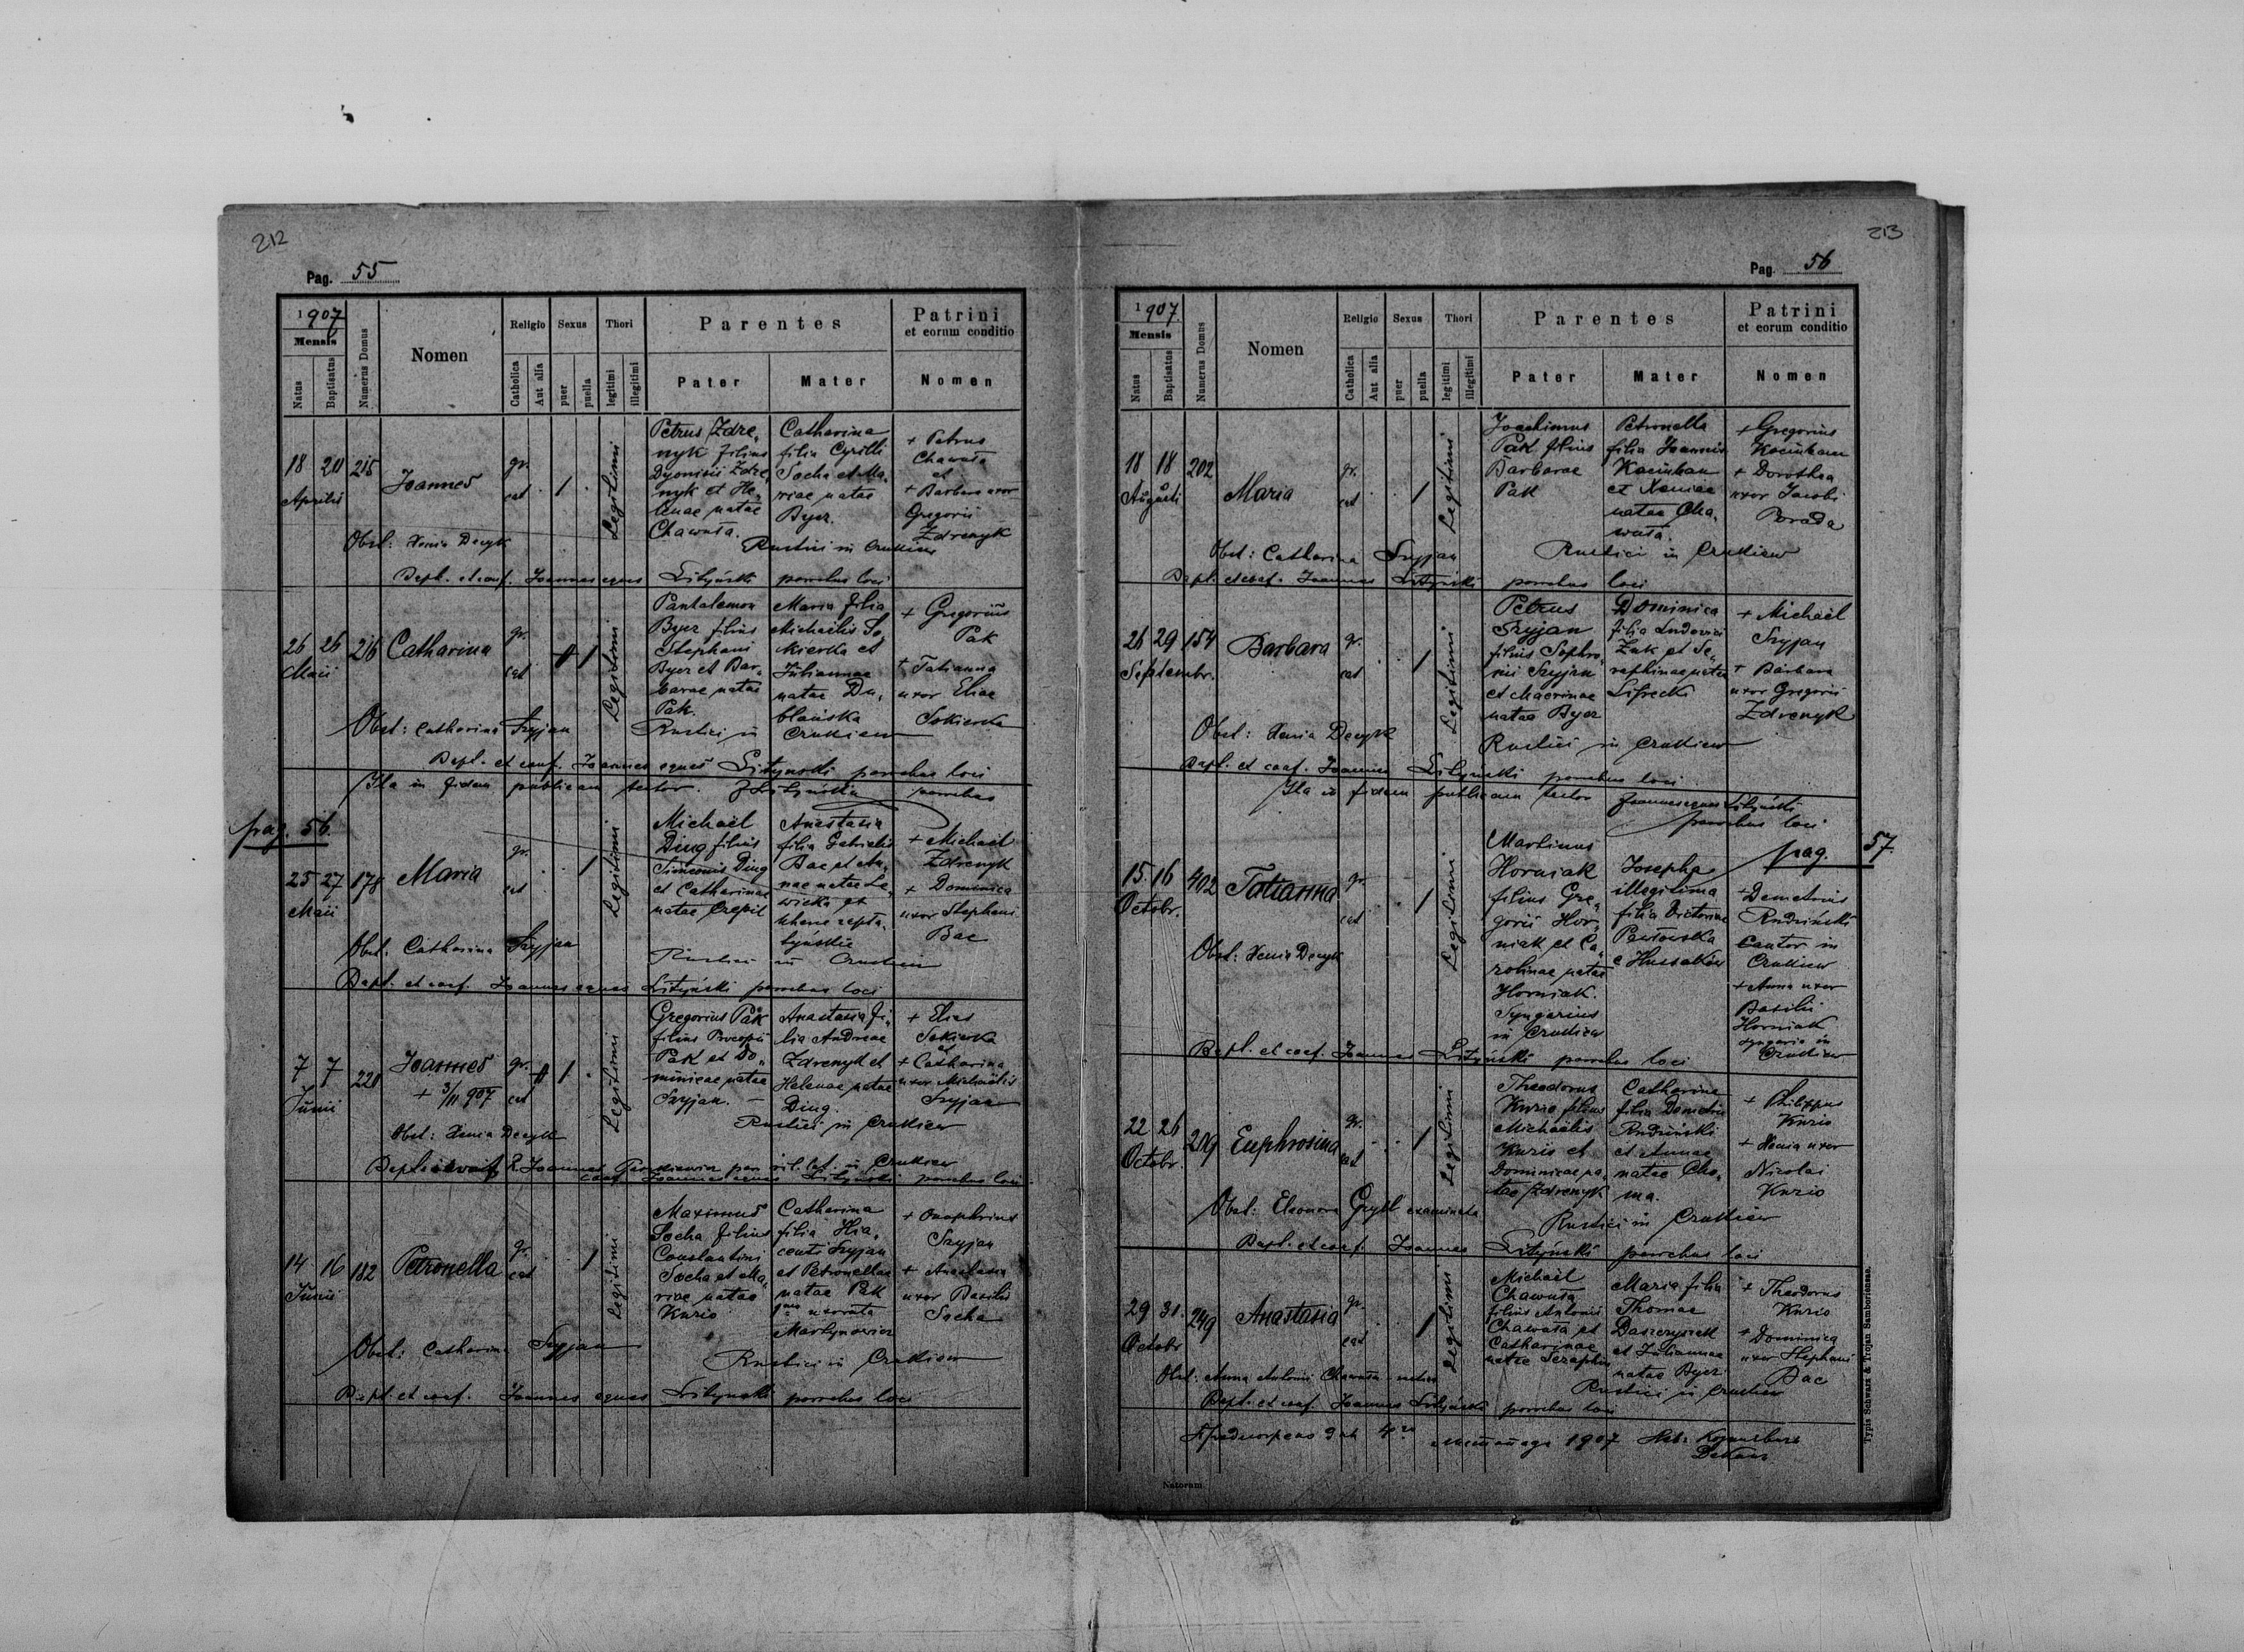 212
Pag. 55
1907
Mensis
Natus
Baptisatus
Numerus Domus
Nomen
Religio
Catholica
Aut alia
Sexus
puer
puella
Thori
legitimi
illegitimi
Parentes
Pater
Mater
Patrini
et eorum conditio
Nomen
18 20 215
Aprilis
Joannes
gr.
cat
1
Legitimi
Petrus Zdre„
nyk filius
Dyonisii Zdre„
nyk et He„
lenae natae
Chawała.
Catharina
filia Cyrilli
Socha et Ma„
riae natae
Byer.
+ Petrus
Chawała
et
+ Barbara uxor
Gregorii
Zdrenyk
Rustici in Crukien
Obst: Xenia Decyk
Bapt. et conf. Joannes eques Lityński parochus loci
26 26 216
Maii
Catharina
gr.
cat
1
Legitimi
Pantalemon
Byer filius
Stephani
Byer et Bar„
barae natae
Pak.
Maria filia
Michaëlis So„
kierka et
Juliannae
natae Du„
blańska
+ Gregorius
Pak
+ Tatianna
uxor Eliae
Sokierka
Obst: Catharina Szyjan
Rustici in Crukien
Bapt. et conf. Joannes eques Lityński parochus loci
Ita in fidem publicam testor. J Lityński parochus
pag. 56.
25 27 178
Maii
Maria
gr.
cat
1
Legitimi
Michaël
Ding filius
Simeonis Ding
et Catharinae
natae Crepil
Anastasia
filia Gabrielis
Bac et An„
nae natae Le„
wicka et
+ Michaël
Zdrenyk
+ Dominica
uxor Stephani
Bac
Obst. Catharina Szyjan
Rustici in Crukien
Bapt. et conf. Joannes eques Lityński parochus loci
7 7 220
Junii
Joannes
+ 3/11 907
gr.
cat
1
Legitimi
Gregorius Pak
filius Procopii
Pak et Do„
minicae natae
Szyjan. —
Anastasia fi„
lia Andreae
Zdrenyk et
Helenae natae
Ding.
+ Elias
Sokierka
et
+ Catharina
uxor Michaëlis
Szyjan
Rustici in Crukien
Obst: Xenia Decyk
conf Joannes eques Lityński parochus loci
14 16 182
Junii
Petronella
gr.
cat
1
Legitimi
Maximus
Socha filius
Constantini
Socha et Ma„
riae natae
Kurio
Catharina
filia Hia„
centi Szyjan
et Petronellae
natae Pak
uxorata
Martynowicz
+ Onuphrius
Szyjan
+ Anastasia
uxor Basilii
Socha
Obst: Catharina Szyjan
Rustici in Crukien
Bapt. et conf. Joannes eques Lityński parochus loci
213
Pag. 56
1907.
Mensis
Natus
Baptisatus
Numerus Domus
Nomen
Religio
Catholica
Aut alia
Sexus
puer
puella
Thori
legitimi
illegitimi
Parentes
Pater
Mater
Patrini
et eorum conditio
Nomen
18 18 202
Augusti
Maria
gr.
cat
1
Legitimi
Joachimus
Pak filius
Barbarae
Pak
Petronella
filia Joannis
et Xeniae
natae Cha„
wała.
+ Gregorius
+ Dorothea
uxor Jacobi
Porada
Obst: Catharina Szyjan
Rustici in Crukien
Bapt. et conf. Joannes Lityński parochus loci
26 29 154
Septembr.
Barbara
gr.
cat
1
Legitimi
Petrus
Szyjan
filius Sophro„
nii Szyjan
et Macrinae
natae Byer
Dominica
filia Ludovici
Żuk et Se„
raphinae natae
Lisiecki
+ Michaël
Szyjan
+ Barbara
uxor Gregorii
Zdrenyk
Obst: Xenia Decyk
Rustici in Crukien
Bapt. et conf. Joannes Lityński parochus loci
Ita in fidem publicam testor Joannes eques Lityński
parochus loci
pag. 57.
15. 16 402
Octobr.
Tatianna
gr.
cat
1
Legitimi
Martinus
Horniak
filius Gre„
gorii Hor„
niak et Ca„
rolinae natae
Horniak.
Syngarius
in Crukien
Josepha
illegitima
filia Victoriae
Pawłowska
e Hussaków
+ Demetrius
Rudziński
Cantor in
Crukien
+ Anna uxor
Basilii
Horniak
syngarii in
Crukien
Obst: Xenia Decyk
Bapt. et conf. Joannes Lityński parochus loci
22 26 219
Octobr.
Euphrosina
gr.
cat
1
Legitimi
Theodorus
Kurio filius
Michaëlis
Kurio et
Dominicae na„
tae Zdrenyk
Catharina
filia Demetrii
Rudziński
et Annae
natae Cho„
ma.
+ Philippus
Kurio
+ Xenia uxor
Nicolai
Kurio
Obst: Eleonora Gryll examinata
Rustici in Crukien
Bapt. et conf. Joannes Lityński parochus loci
29 31. 249
Octobr
Anastasia
gr.
cat
1
Legitimi
Michaël
Chawała
filius Antonii
Chawała et
Catharinae
natae Seraphin
Maria filia
Thomae
Daszczyszak
et Juliannae
natae Byer
+ Theodorus
Kurio
+ Dominica
uxor Stephani
Bac
Obst: Anna Antonii Chawała
Rustici in Crukien
Bapt. et conf. Joannes Lityński parochus loci
1907
Natorum
Typis Schwarz & Trojan Samboriensae.